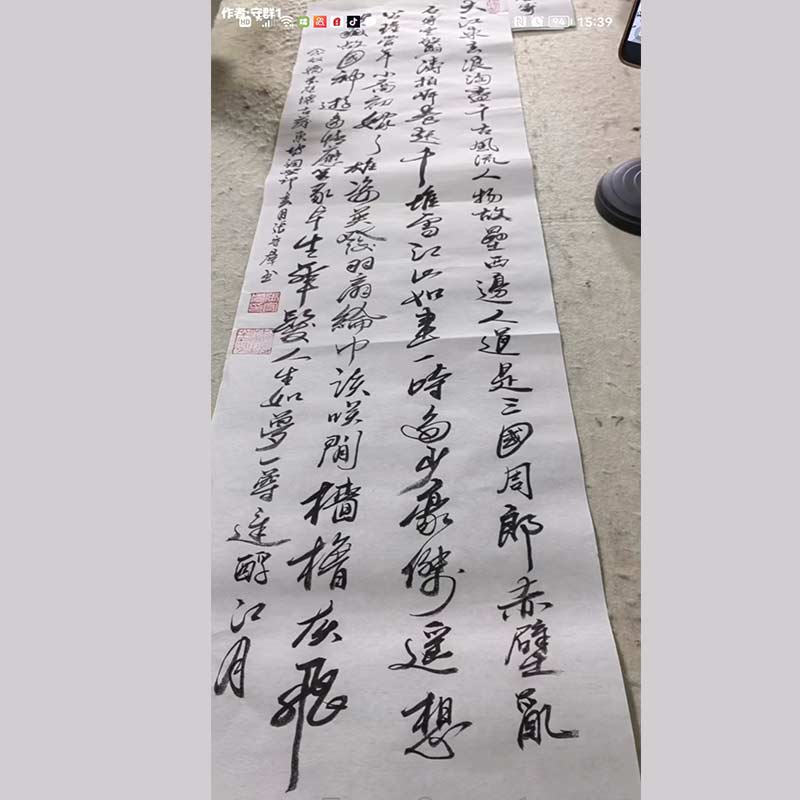 作者:守群1
HD
94
15:39
大江東去浪淘盡千古風流人物故壘西邊人道是三國周郎赤壁亂
石穿空驚濤拍岸卷起千堆雪江山如畫一時多少豪傑遙想
公瑾當年小喬初嫁了雄姿英發羽扇綸巾談笑間檣櫓灰飛
滅故國神遊多情應笑我早生華髮人生如夢一尊還酹江月
念奴嬌赤壁懷古蘇東坡詞癸卯月守群書